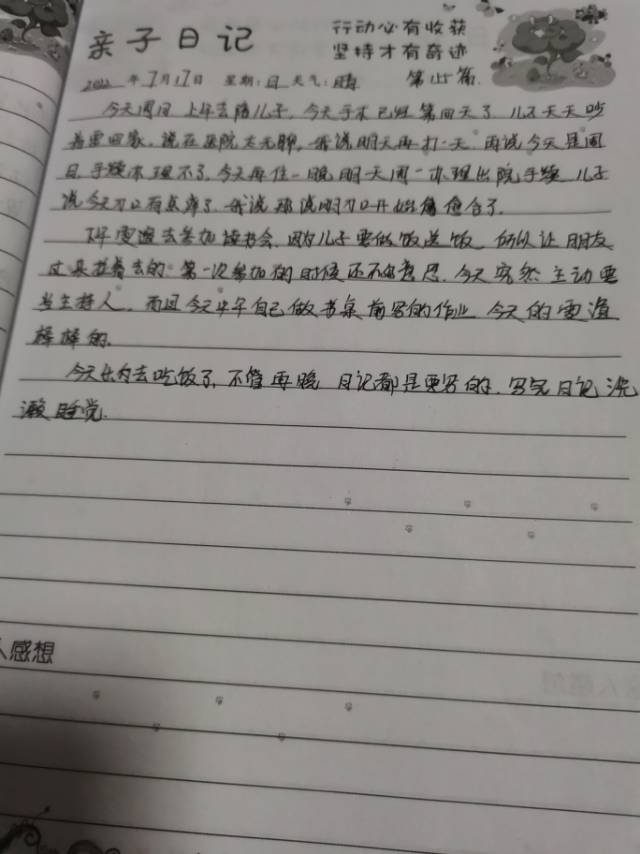 亲子日记
行动必有收获
坚持才有奇迹
2022年7月17日 星期:日 天气:晴 第115篇
今天周日 上午去陪儿子,今天手术已经第四天了,儿子天天吵
着要回家,说在医院太无聊,我说明天再打一天,再说今天是周
日,手续办理不了,今天再住一晚明天周一办理出院手续,儿子
说今天刀口有点痒了,我说那说明刀口开始愈合了.
下午雯滢去参加读书会,因为儿子要做饭送饭,所以让朋友
过来接着去的.第一次参加的时候还不好意思,今天突然主动要
当主持人,而且今天中午自己做书桌前写的作业,今天的雯滢
棒棒的.
今天出去吃饭了,不管再晚 日记都是要写的,写完日记洗
濑睡觉.
人感想